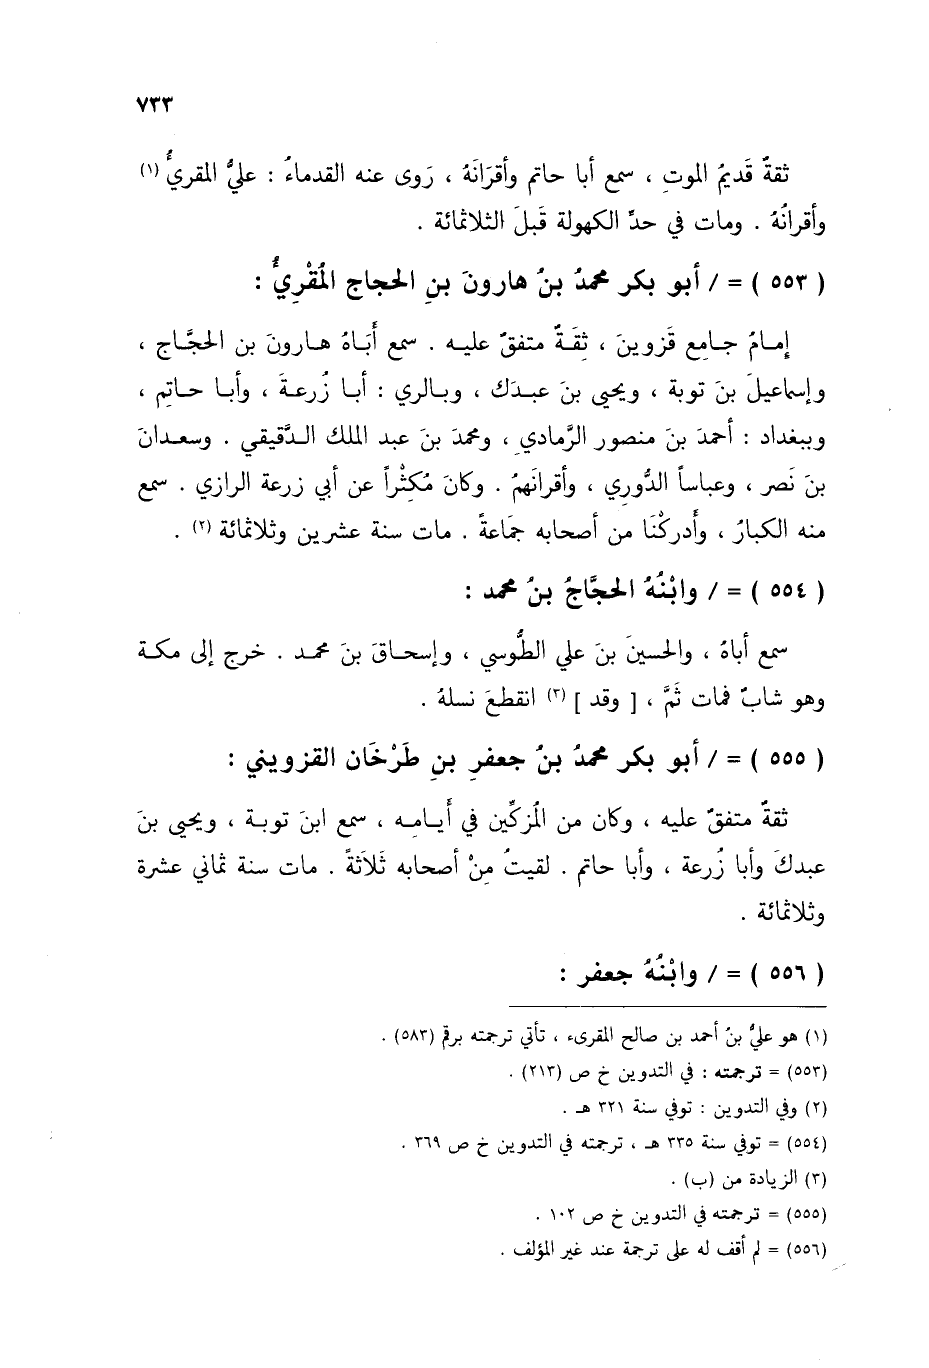 ٧٣٣
ثقةٌ قَديمُ الموتِ ، سمع أبا حاتم وأقرَانَهُ ، رَوى عنه القدماءُ : عليُّ المقريُّ (١)
وأقرانُهُ . ومات في حدِّ الكهولة قَبلَ الثلاثمائة .
( ٥٥٣ ) = / أبو بكر محمدُ بنُ هارونَ بنِ الحجاج المُقْرِيُّ :
إمـامُ جـامِع قَزوينَ ، ثِقَـةٌ متفقٌ عليـه . سمع أَبَاهُ هـارونَ بن الحجَّـاج ،
وإسماعيلَ بنَ توبة ، ويحيى بنَ عبـدَك ، وبـالري : أبـا زُرعـةَ ، وأبـا حـاتِم ،
وببغداد : أحمدَ بنَ منصور الرَّمادي ، ومحمدَ بنَ عبد الملك الـدَّقيقي . وسعـدانَ
بنَ نَصر ، وعباساً الدُّوري ، وأقرانَهمُ . وكانَ مُكثْراً عن أبي زرعة الرازي . سمع
منه الكبارُ ، وأَدركْنَا من أصحابه جمَاعةً . مات سنة عشرين وثلاثمائة (٢) .
( ٥٥٤ ) = / وابْنُهُ الحجَّاجُ بنُ محمد :
سمع أباهُ ، والحسينَ بنَ علي الطُّوسي ، وإسحـاقَ بنَ محمـد . خرج إلى مكـة
وهو شابٌ فمات ثَمَّ ، [ وقد ] (٣) انقطعَ نسلهُ .
( ٥٥٥ ) = / أبو بكر محمدُ بنُ جعفرِ بنِ طَرْخَان القزويني :
ثقةٌ متفقٌ عليه ، وكان من المُزكِّين في أَيـامـه ، سمع ابنَ توبـة ، ويحيى بنَ
عبدكَ وأبا زُرعة ، وأبا حاتم . لقيتُ مِنْ أصحابه ثَلاَثةً . مات سنة ثماني عشرة
وثلاثمائة .
( ٥٥٦ ) = / وابْنُهُ جعفر :
(١) هو عليُّ بنُ أحمد بن صالح المقرىء ، تأتي ترجمته برقم (٥٨٣) .
(٥٥٣) = ترجمته : في التدوين خ ص (٢١٣) .
(٢) وفي التدوين : توفي سنة ٣٢١ هـ .
(٥٥٤) = توفي سنة ٣٣٥ هـ ، ترجمته في التدوين خ ص ٣٦٩ .
(٣) الزيادة من (ب) .
(٥٥٥) = ترجمته في التدوين خ ص ١٠٢ .
(٥٥٦) = لم أقف له على ترجمة عند غير المؤلف .